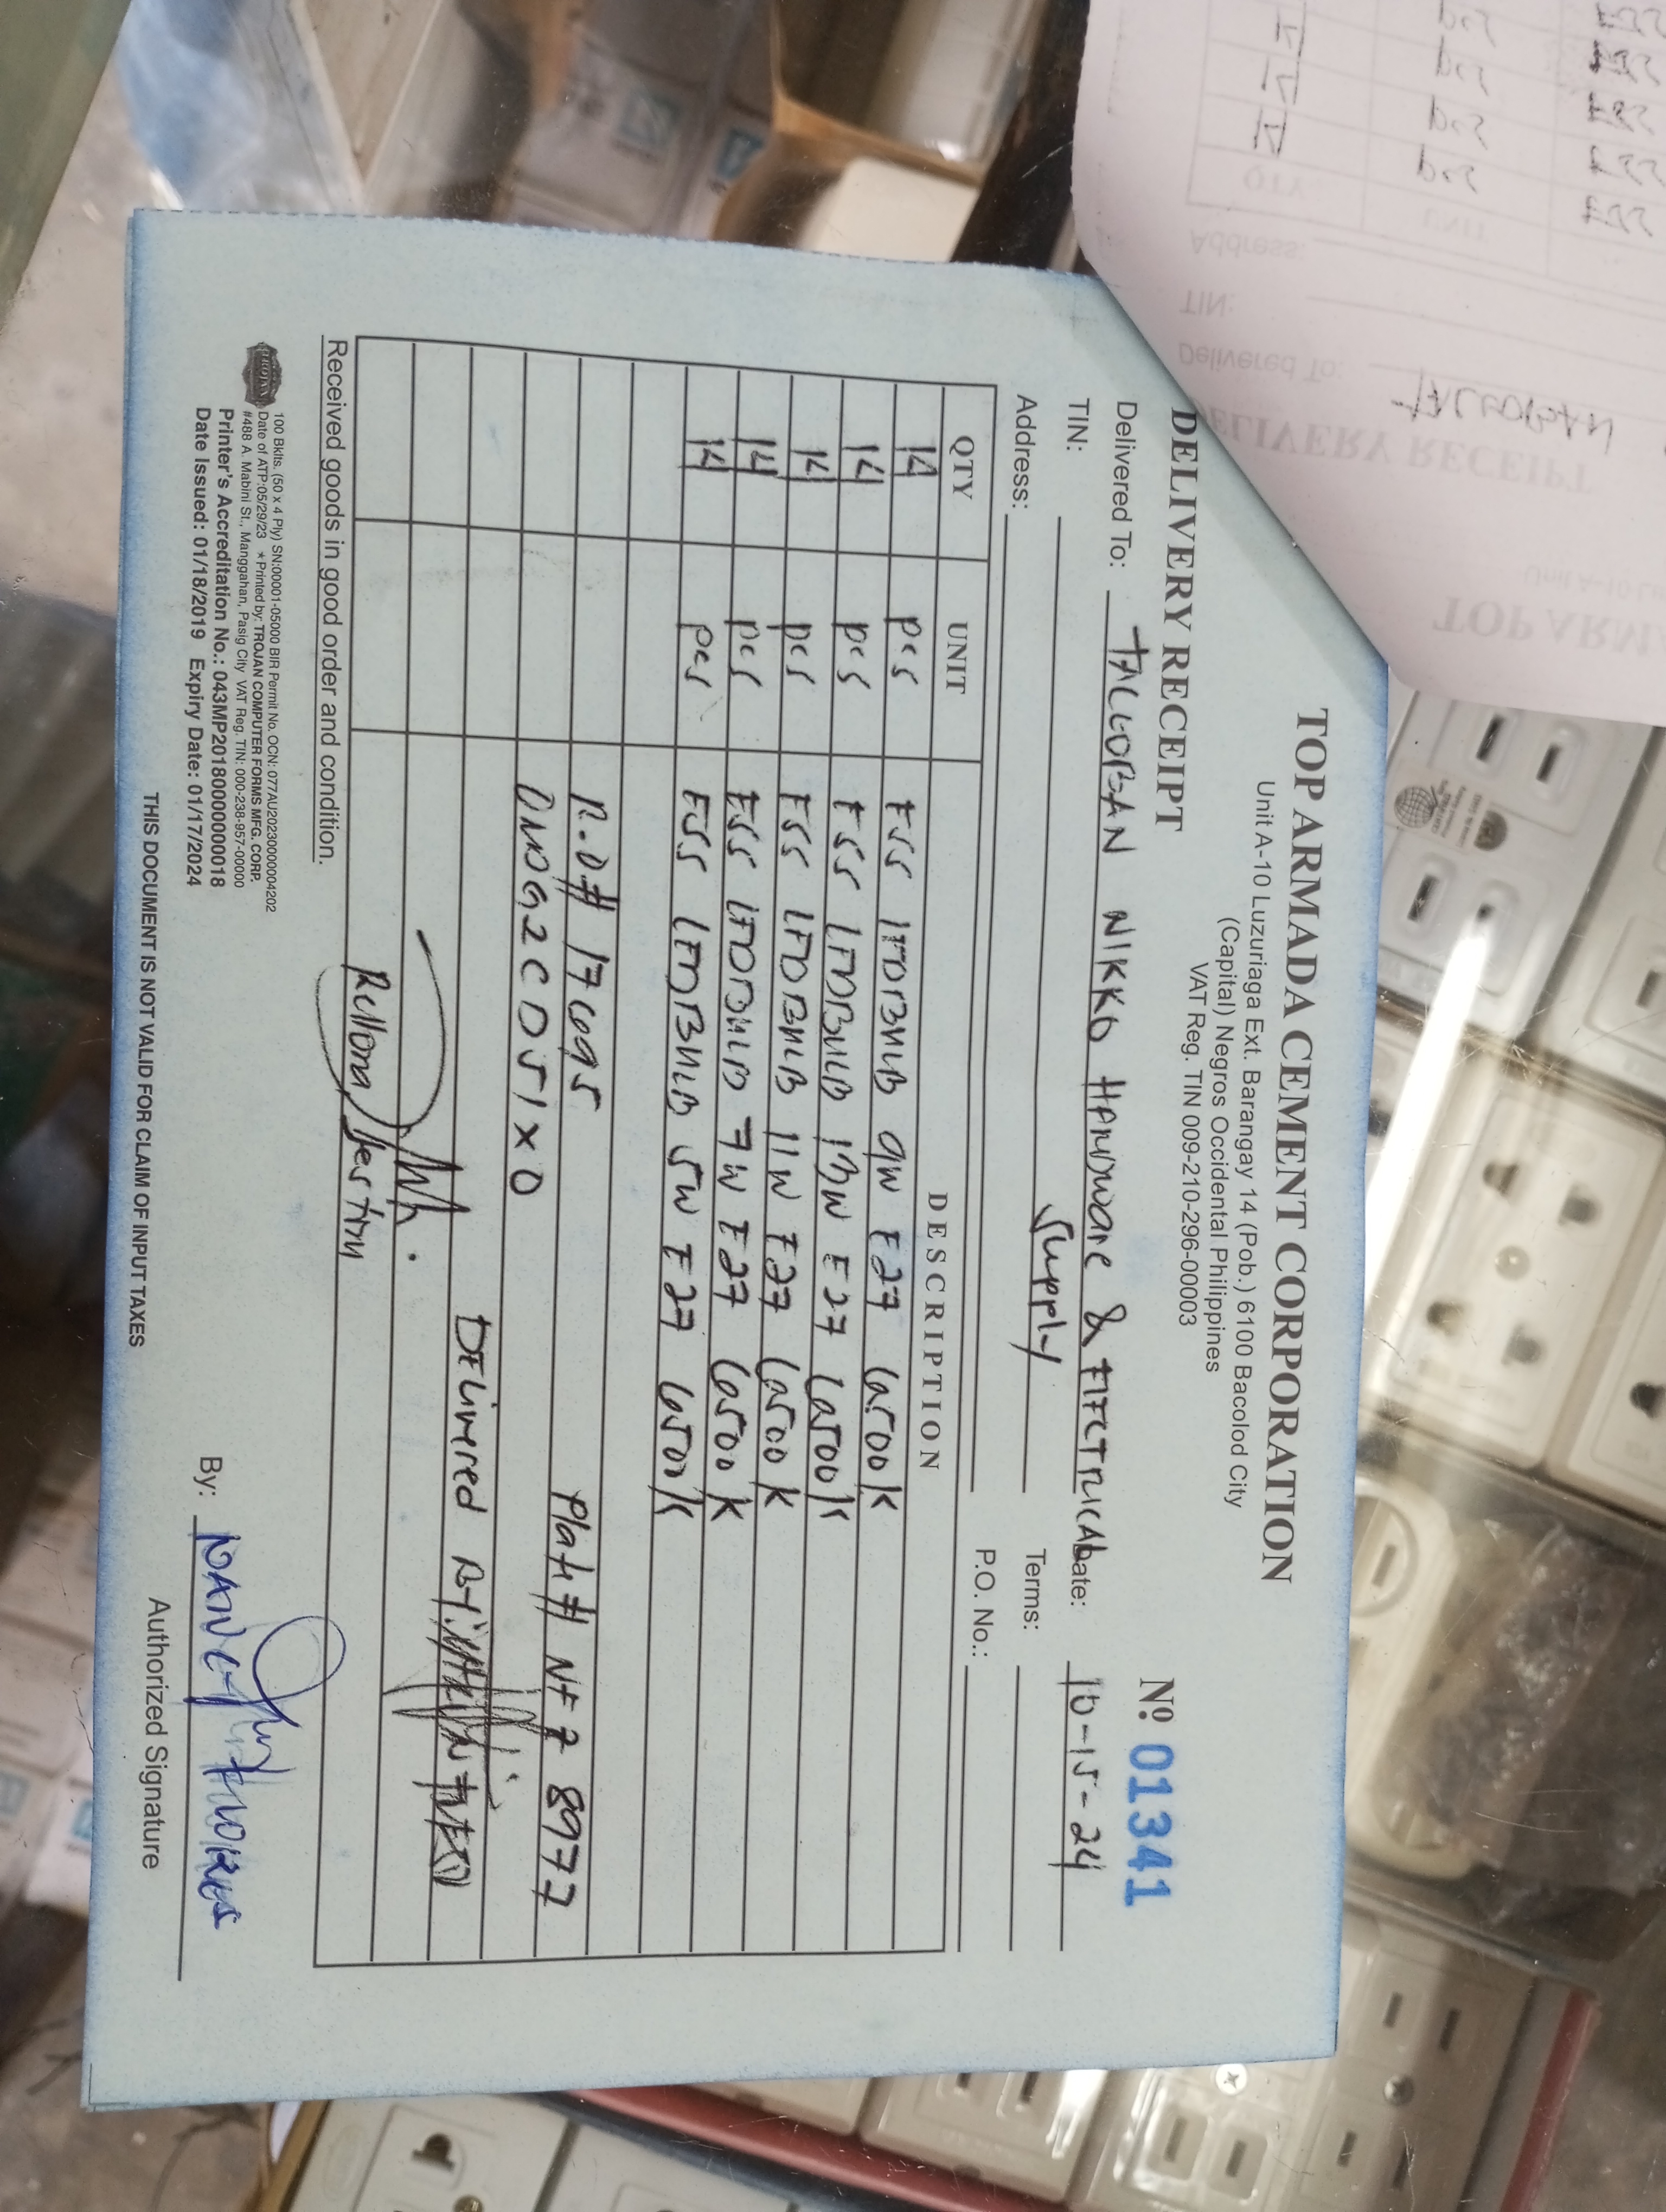 TOP ARMADA CEMENT CORPORATION
Unit A-10 Luzuriaga Ext. Barangay 14 (Pob.) 6100 Bacolod City
(Capital) Negros Occidental Philippines
VAT Reg. TIN 009-210-296-00003
DELIVERY RECEIPT
Nº 01341
Delivered To: TACLOBAN NIKKO HARDWARE & ELECTRICAL
Date: 10-15-24
TIN: Supply
Terms:
Address:
P.O. No.:
QTY UNIT DESCRIPTION
14 pcs ESS LEDBULB 9W E27 6500K
14 pcs ESS LEDBULB 13W E27 6500K
14 pcs ESS LEDBULB 11W E27 6500K
14 pcs ESS LEDBULB 7W E27 6500K
14 pcs ESS LEDBULB 5W E27 6500K
R.O# 17695 Plate# NFZ 8977
DWG2CD51XO
DELivered By:
Received goods in good order and condition.
TROJAN
100 Bklts. (50 x 4 Ply) SN:00001-05000 BIR Permit No. OCN: 077AU20230000004202
Date of ATP:05/29/23 *Printed by: TROJAN COMPUTER FORMS MFG. CORP.
#488 A. Mabini St., Manggahan, Pasig City VAT Reg. TIN: 000-238-957-00000
Printer's Accreditation No.: 043MP20180000000018
Date Issued: 01/18/2019 Expiry Date: 01/17/2024
By:
Authorized Signature
THIS DOCUMENT IS NOT VALID FOR CLAIM OF INPUT TAXES
TOP ARM
DELIVERY RECEIPT
Delivered To:
TIN:
Address:
QTY UNIT